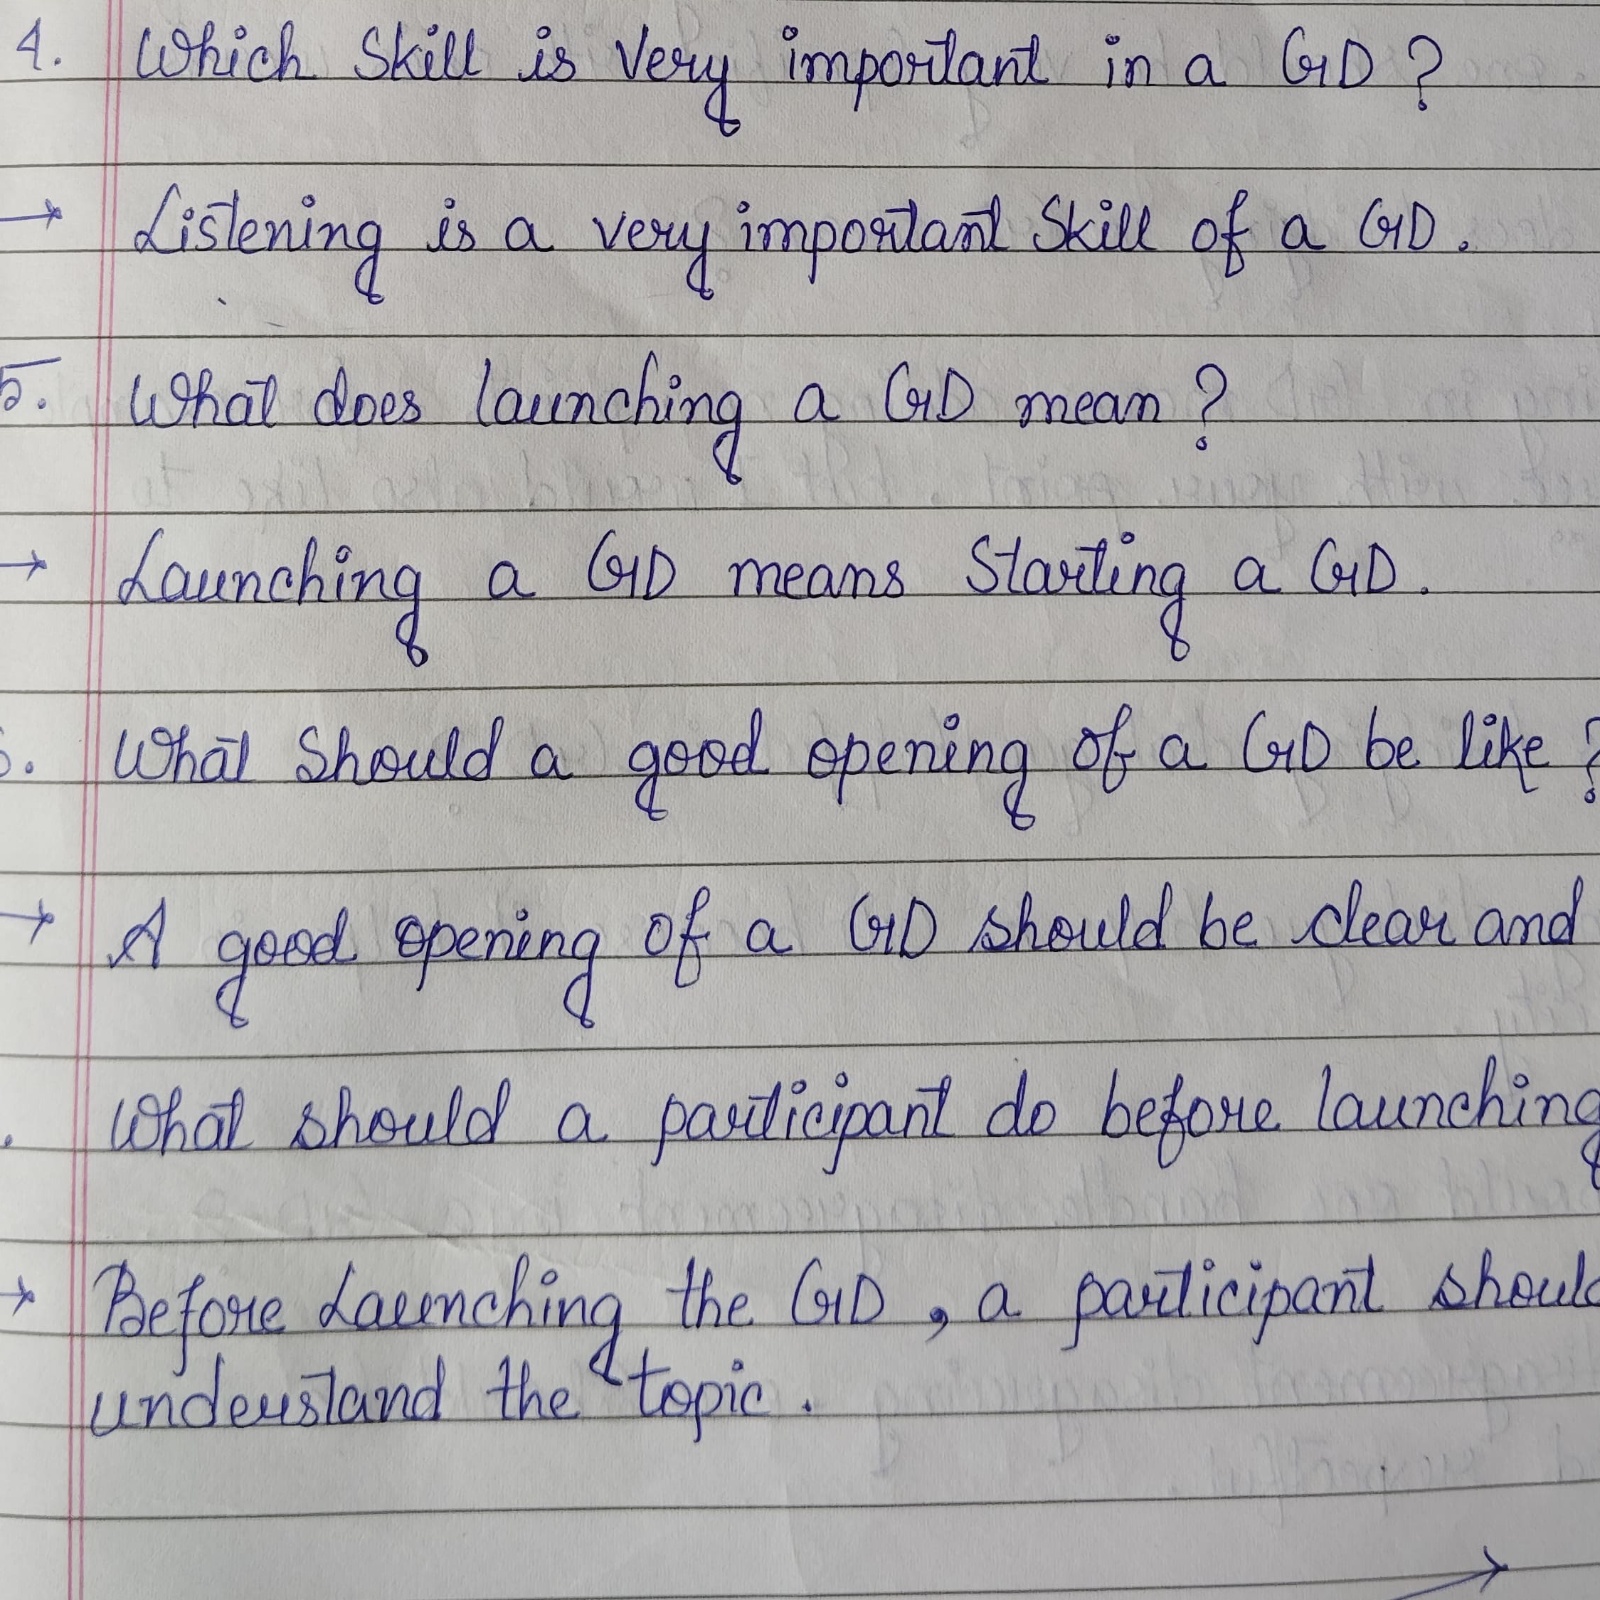 4. Which Skill is Very important in a GD ?
→ Listening is a very important Skill of a GD.
5. What does launching a GD mean ?
→ Launching a GD means Starting a GD.
. What Should a good opening of a GD be like ?
→ A good opening of a GD should be clear and
. What should a participant do before launching
→ Before Launching the GD, a participant shoul
understand the topic.
→